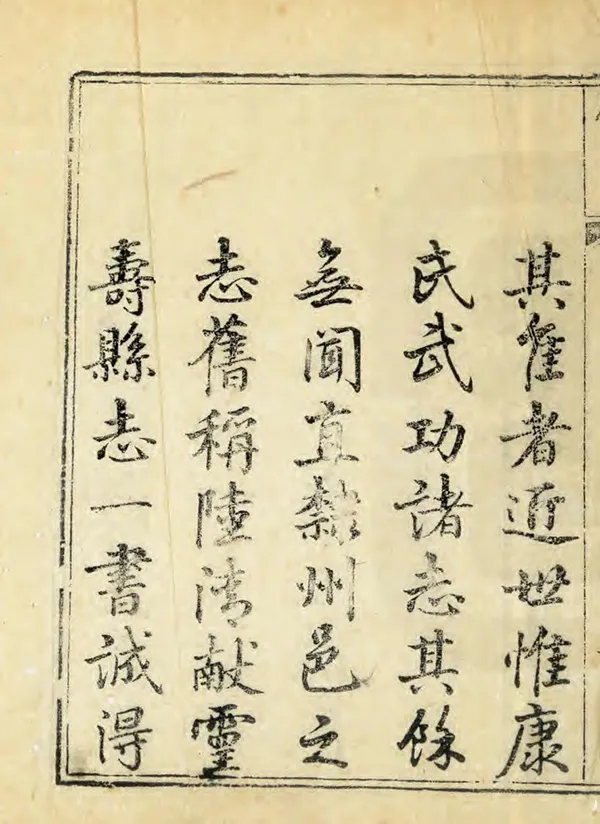 其隹者近世惟康
氏武功諸志其餘
無聞直隸州邑之
志舊稱陸清獻靈
壽縣志一書誠得